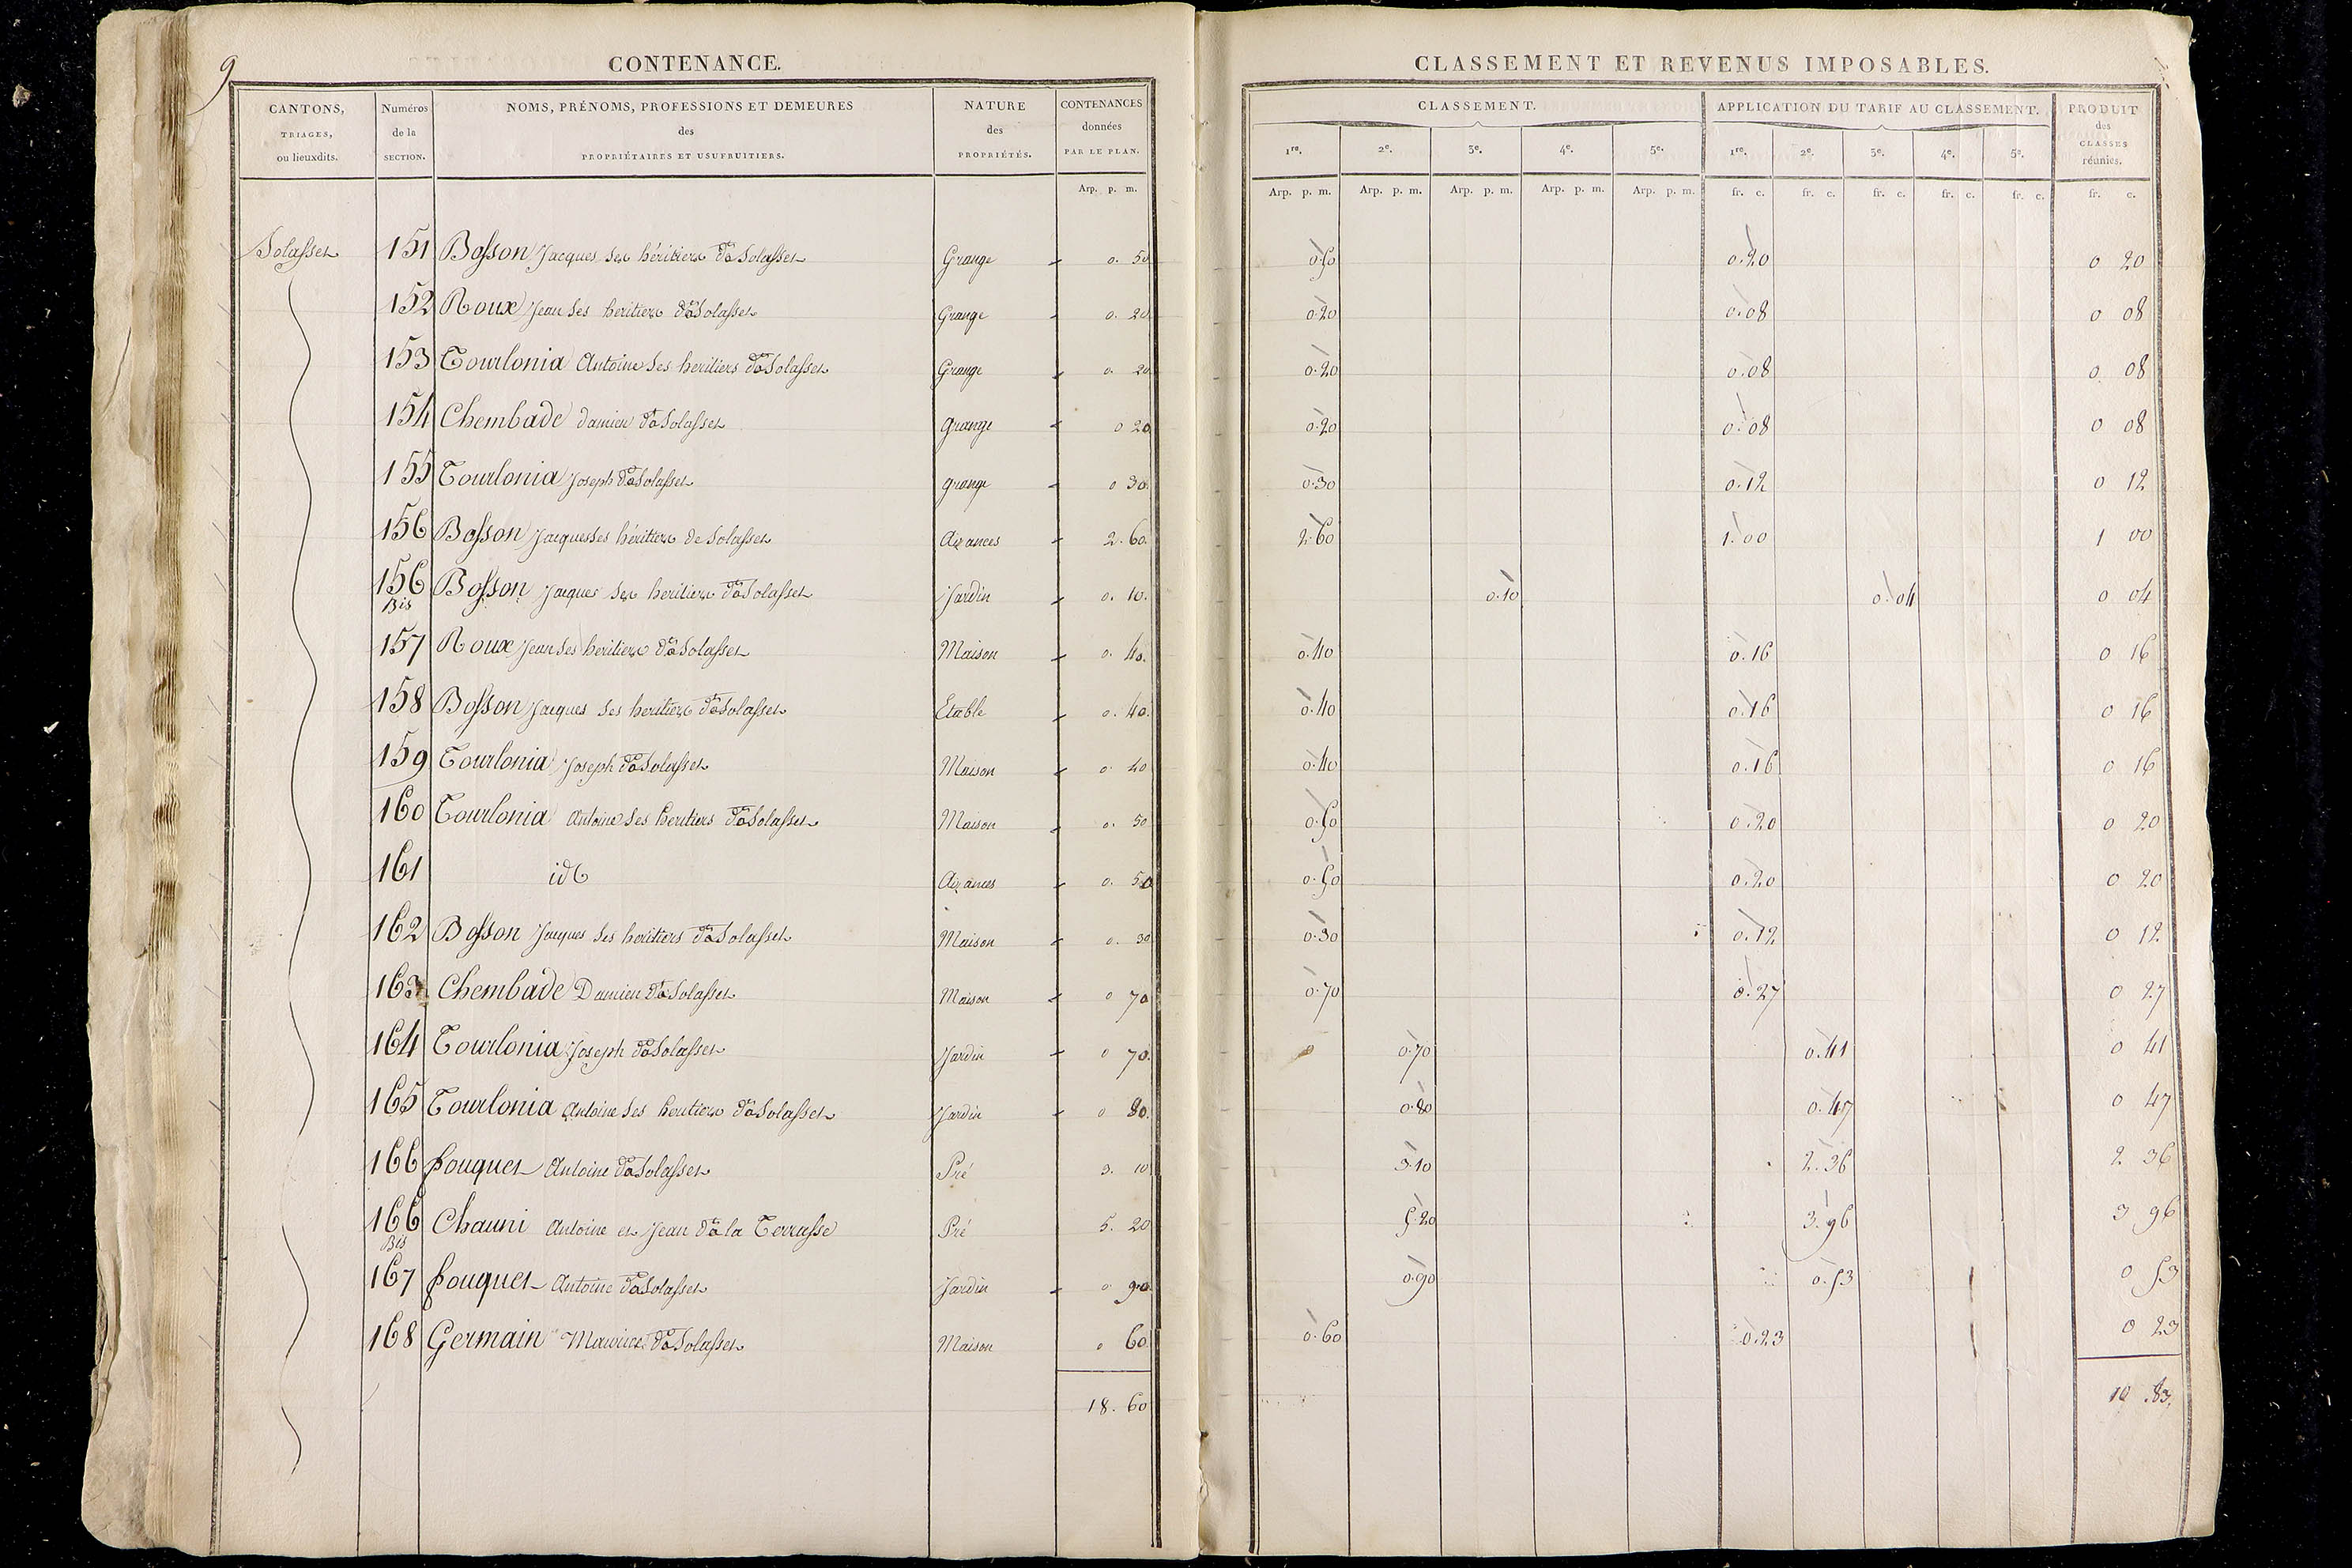 9
CONTENANCE.
CANTONS, TRIAGES, ou lieuxdits.
Numéros de la SECTION.
NOMS, PRÉNOMS, PROFESSIONS ET DEMEURES des PROPRIÉTAIRES ET USUFRUITIERS.
NATURE des PROPRIÉTÉS.
CONTENANCES données PAR LE PLAN.
Arp. p. m.
CLASSEMENT ET REVENUS IMPOSABLES.
CLASSEMENT.
APPLICATION DU TARIF AU CLASSEMENT.
PRODUIT des CLASSES réunies.
1re. 2e. 3e. 4e. 5e. 1re. 2e. 3e. 4e. 5e.
Arp. p. m. Arp. p. m. Arp. p. m. Arp. p. m. Arp. p. m. fr. c. fr. c. fr. c. fr. c. fr. c. fr. c.
Solasset 151 Bosson Jacques ses héritiers de Solasset Grange 0. 50 0.50 0.20 0 20
152 Roux Jean ses heritiers de Solasset Grange 0. 20 0.20 0.08 0 08
153 Tourlonia Antoine ses heritiers de Solasset Grange 0. 20 0.20 0.08 0. 08
154 Chembade Damien de Solasset Grange 0 20 0.20 0.08 0 08
155 Tourlonia Joseph de Solasset grange 0 30 0.30 0.12 0 12
156 Bosson Jacques ses héritiers de Solasset Aizances 2. 60. 2.60 1.00 1 00
156 Bis Bosson Jacques ses heritiers de Solasset Jardin 0. 10. 0.10 0.04 0 04
157 Roux Jean ses heritiers de Solasset Maison 0. 40. 0.40 0.16 0 16
158 Bosson Jacques ses heritiers de Solasset Etable 0. 40. 0.40 0.16 0 16
159 Tourlonia Joseph de Solasset Maison 0. 40 0.40 0.16 0 16
160 Tourlonia Antoine ses heritiers de Solasset Maison 0. 50 0.50 0.20 0 20
161 id Aizances 0. 50 0.50 0.20 0 20
162 Bosson Jacques ses heritiers de Solasset Maison 0. 30 0.30 0.12 0 12
163 Chembade Damien de Solasset Maison 0 70 0.70 0.27 0 27
164 Tourlonia Joseph de Solasset Jardin 0 70. 0.70 0.41 0 41
165 Tourlonia Antoine ses heritiers de Solasset Jardin 0 80. 0.80 0.47 0 47
166 fouquet Antoine de Solasset Pré 3. 10 3.10 2.36 2 36
166 Bis Chauni Antoine et Jean de la Terrasse Pré 5. 20 5.20 3.96 3 96
167 fouquet Antoine de Solasset Jardin 0 90. 0.90 0.53 0 53
168 Germain Maurice de Solasset Maison 0 60 0.60 0.23 0 23
18. 60 10 .83.